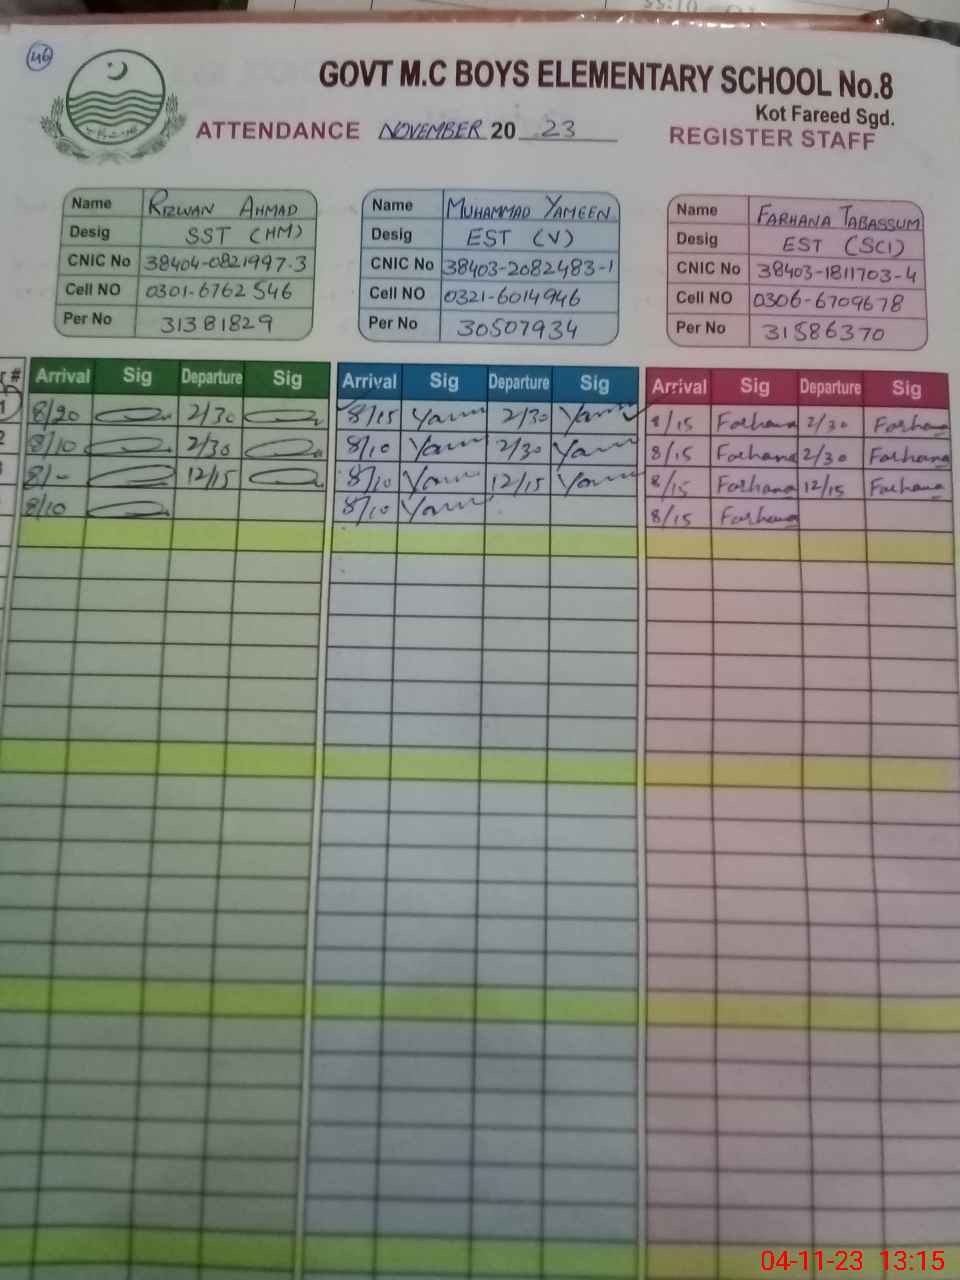 46
GOVT M.C BOYS ELEMENTARY SCHOOL No.8
Kot Fareed Sgd.
ATTENDANCE NOVEMBER 20 23 REGISTER STAFF
Name RIZWAN AHMAD
Desig SST (HM)
CNIC No 38404-0821997-3
Cell NO 0301-6762546
Per No 31381829
Name MUHAMMAD YAMEEN
Desig EST (V)
CNIC No 38403-2082483-1
Cell NO 0321-6014946
Per No 30507934
Name FARHANA TABASSUM
Desig EST (SCI)
CNIC No 38403-1811703-4
Cell NO 0306-6709678
Per No 31586370
r # Arrival Sig Departure Sig Arrival Sig Departure Sig Arrival Sig Departure Sig
1 8/20 2/30 8/15 2/30 8/15 Farhana 2/30 Farhana
2 8/10 2/30 8/10 2/30 8/15 Farhana 2/30 Farhana
8/- 12/15 8/10 12/15 8/15 Farhana 12/15 Farhana
8/10 8/10 8/15 Farhana
04-11-23 13:15